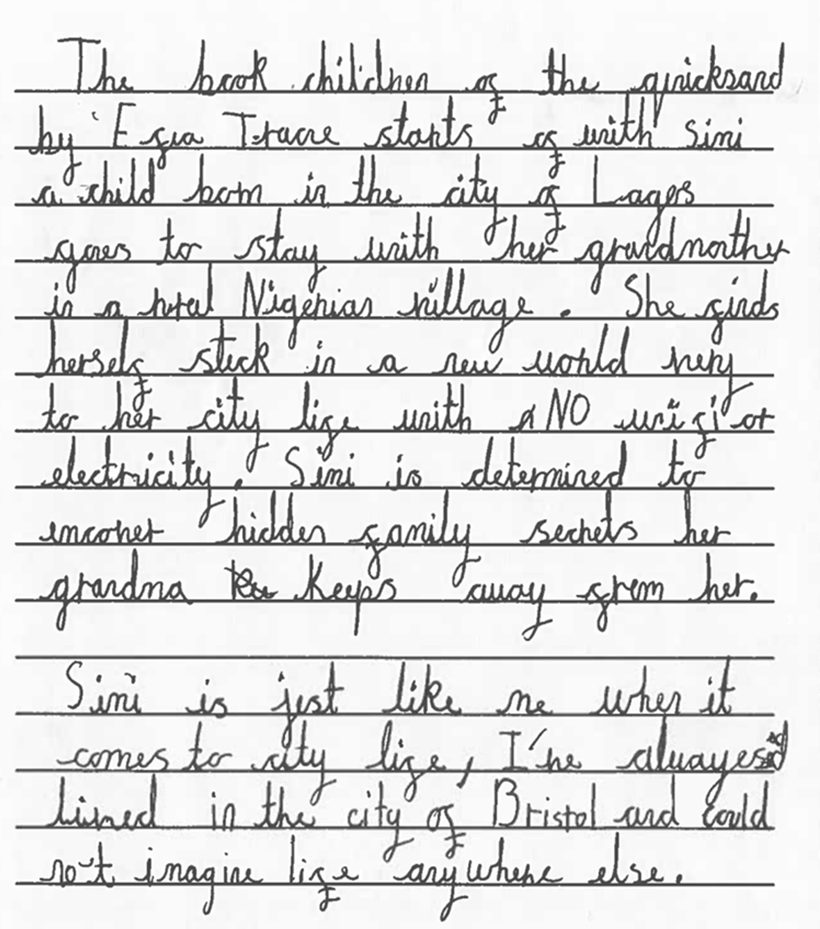 The book children of the quicksand
by Efua Traore starts of with Simi
a child born in the city of Lagos
goes to stay with her grandmother
in a rural Nigerian village. She finds
herself stuck in a new world very
to her city life with NO wifi or
electricity. Simi is determined to
uncover hidden family secrets her
grandma keeps away from her.
Simi is just like me when it
comes to city life, I've always
lived in the city of Bristol and could
not imagine life anywhere else.